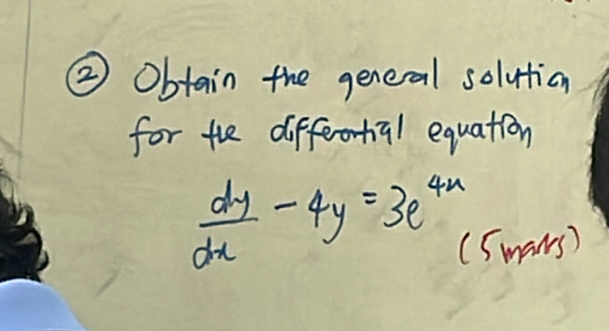 ② Obtain the general solution
for the differential equation
dy/dx - 4y = 3e^4x
(5 marks)